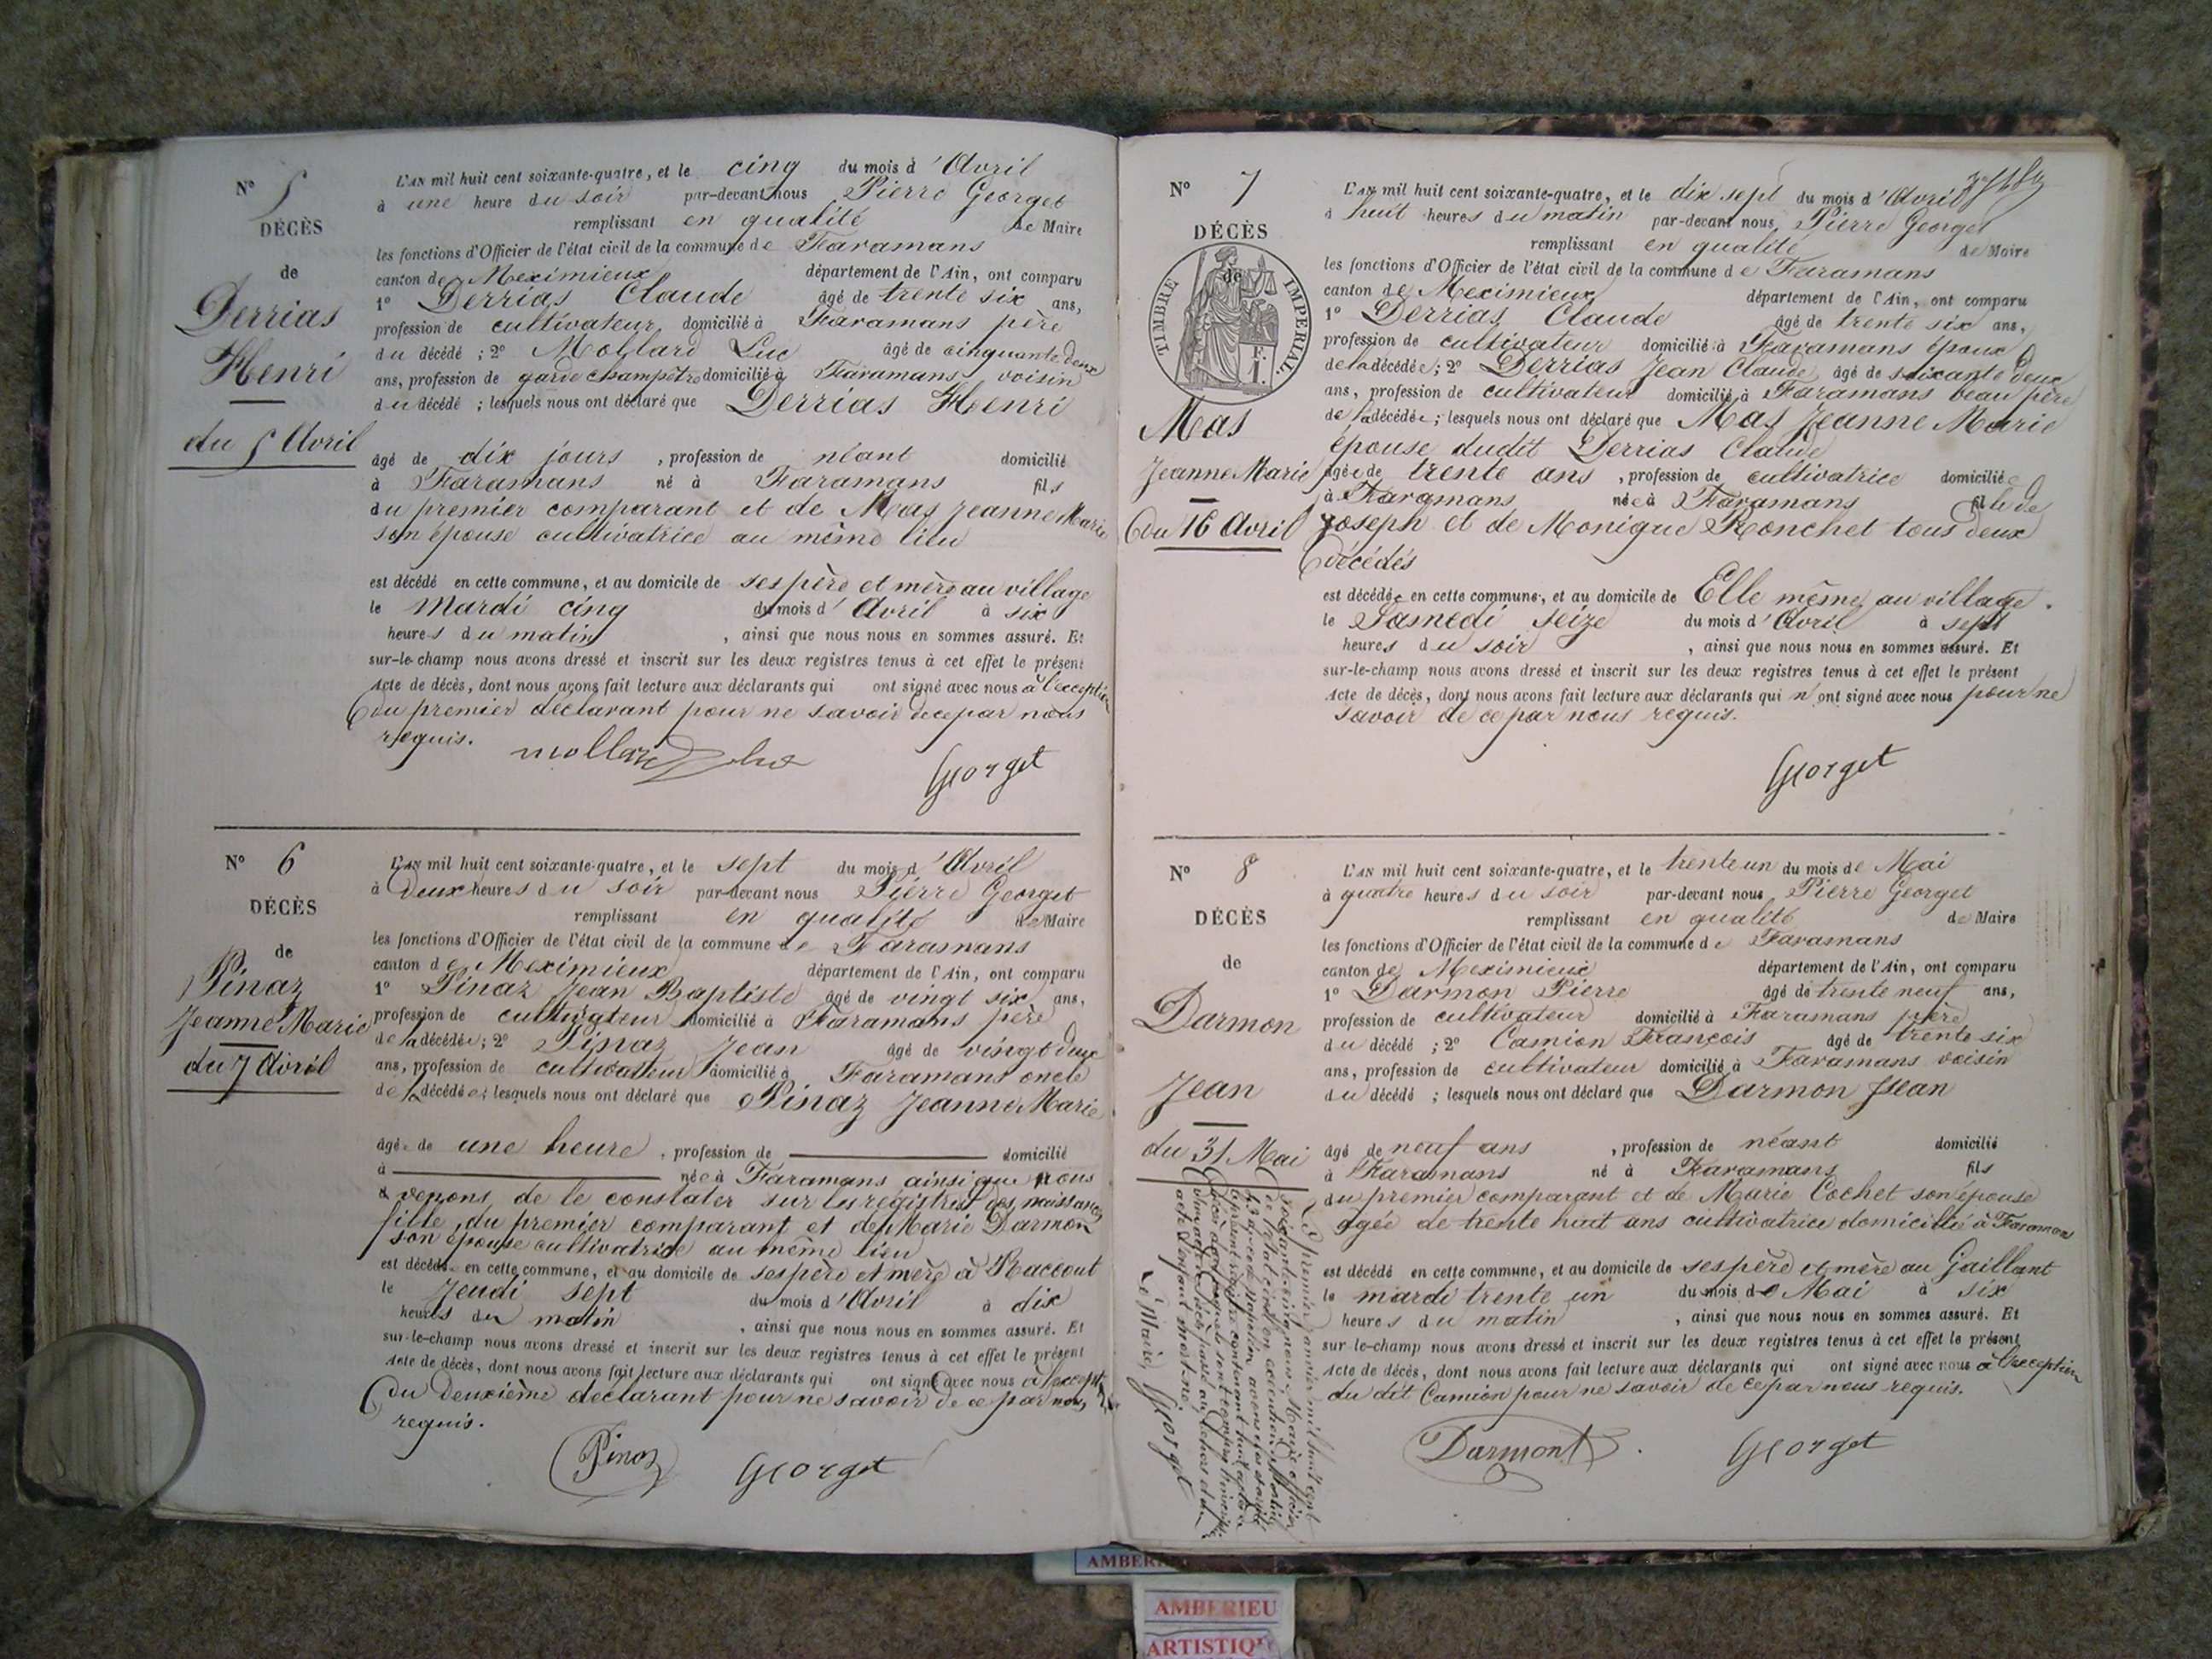 N° 5
DÉCÈS
de
Derrias
Henri
du 5 Avril
L'AN mil huit cent soixante-quatre, et le cinq du mois d'Avril
à une heure du soir par-devant nous Pierre Georget
remplissant en qualité de Maire
les fonctions d'Officier de l'état civil de la commune de Faramans
canton de Meximieux département de l'Ain, ont comparu
1° Derrias Claude âgé de trente six ans,
profession de cultivateur domicilié à Faramans père
du décédé ; 2° Mollard Luc âgé de cinquante deux
ans, profession de garde champêtre domicilié à Faramans voisin
du décédé ; lesquels nous ont déclaré que Derrias Henri
âgé de dix jours , profession de néant domicilié
à Faramans né à Faramans fils
du premier comparant et de Mas Jeanne Marie
son épouse cultivatrice au même lieu
est décédé en cette commune, et au domicile de ses père et mère au village
le Mardi cinq du mois d'Avril à six
heures du matin , ainsi que nous nous en sommes assuré. Et
sur-le-champ nous avons dressé et inscrit sur les deux registres tenus à cet effet le présent
Acte de décès, dont nous avons fait lecture aux déclarants qui ont signé avec nous à l'exception
du premier déclarant pour ne savoir de ce par nous
requis.
mollard Georget
N° 6
DÉCÈS
de
Pinaz
Jeanne Marie
du 7 Avril
L'AN mil huit cent soixante-quatre, et le sept du mois d'Avril
à Deux heures du soir par-devant nous Pierre Georget
remplissant en qualité de Maire
les fonctions d'Officier de l'état civil de la commune de Faramans
canton de Meximieux département de l'Ain, ont comparu
1° Pinaz Jean Baptiste âgé de vingt six ans,
profession de cultivateur domicilié à Faramans père
de la décédée ; 2° Pinaz Jean âgé de vingt deux
ans, profession de cultivateur domicilié à Faramans oncle
de la décédée ; lesquels nous ont déclaré que Pinaz Jeanne Marie
âgée de une heure , profession de domicilié
à née à Faramans ainsi que nous
venons de le constater sur les registres des naissances
fille du premier comparant et de Marie Darmon
son épouse cultivatrice au même lieu
est décédée en cette commune, et au domicile de ses père et mère à Raccout
le Jeudi sept du mois d'Avril à dix
heures du matin , ainsi que nous nous en sommes assuré. Et
sur-le-champ nous avons dressé et inscrit sur les deux registres tenus à cet effet le présent
Acte de décès, dont nous avons fait lecture aux déclarants qui ont signé avec nous à l'exception
du deuxième déclarant pour ne savoir de ce par nous
requis.
Pinaz Georget
N° 7
DÉCÈS
de
TIMBRE IMPERIAL
Mas
Jeanne Marie
du 16 Avril
L'AN mil huit cent soixante-quatre, et le dix sept du mois d'Avril
à huit heures du matin par-devant nous Pierre Georget
remplissant en qualité de Maire
les fonctions d'Officier de l'état civil de la commune de Faramans
canton de Meximieux département de l'Ain, ont comparu
1° Derrias Claude âgé de trente six ans,
profession de cultivateur domicilié à Faramans époux
de la décédée ; 2° Derrias Jean Claude âgé de soixante deux
ans, profession de cultivateur domicilié à Faramans beau père
de la décédée ; lesquels nous ont déclaré que Mas Jeanne Marie
épouse dudit Derrias Claude
âgée de trente ans , profession de cultivatrice domiciliée
à Faramans née à Faramans fille de
Joseph et de Monique Ronchet tous deux
décédés
est décédée en cette commune, et au domicile de Elle même au village.
le Samedi seize du mois d'Avril à sept
heures du soir , ainsi que nous nous en sommes assuré. Et
sur-le-champ nous avons dressé et inscrit sur les deux registres tenus à cet effet le présent
Acte de décès, dont nous avons fait lecture aux déclarants qui n'ont signé avec nous pour ne
savoir de ce par nous requis.
Georget
N° 8
DÉCÈS
de
Darmon
Jean
du 31 Mai
L'AN mil huit cent soixante-quatre, et le trente un du mois de Mai
à quatre heures du soir par-devant nous Pierre Georget
remplissant en qualité de Maire
les fonctions d'Officier de l'état civil de la commune de Faramans
canton de Meximieux département de l'Ain, ont comparu
1° Darmon Pierre âgé de trente neuf ans,
profession de cultivateur domicilié à Faramans père
du décédé ; 2° Camion François âgé de trente six
ans, profession de cultivateur domicilié à Faramans voisin
du décédé ; lesquels nous ont déclaré que Darmon Jean
âgé de neuf ans , profession de néant domicilié
à Faramans né à Faramans fils
du premier comparant et de Marie Cochet son épouse
âgée de trente huit ans cultivatrice domiciliée à Faramans
est décédé en cette commune, et au domicile de ses père et mère au Gaillant
le mardi trente un du mois de Mai à six
heures du matin , ainsi que nous nous en sommes assuré. Et
sur-le-champ nous avons dressé et inscrit sur les deux registres tenus à cet effet le présent
Acte de décès, dont nous avons fait lecture aux déclarants qui ont signé avec nous à l'exception
du dit Camion pour ne savoir de ce par nous requis.
Darmont Georget
Le premier janvier mil huit cent
soixante cinq nous Maire officier
de l'état civil en
acte d'enfant mort-né
Le Maire Georget
AMBERIEU
ARTISTIQUE